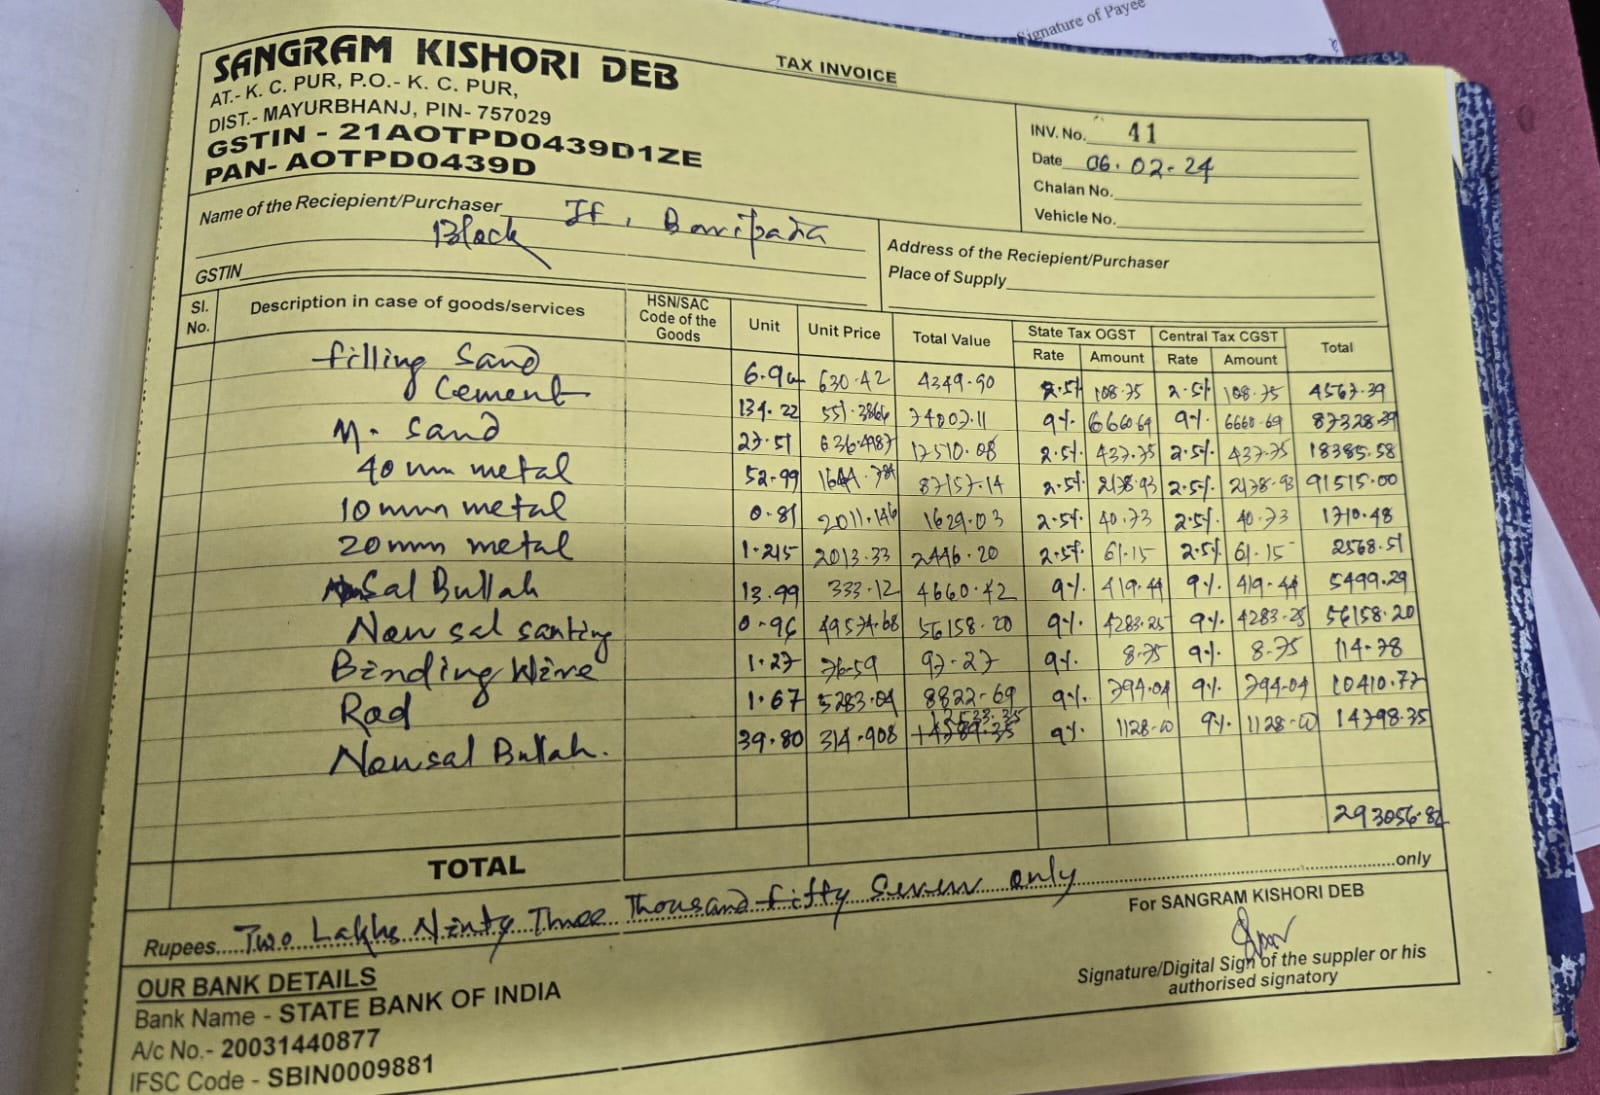 Signature of Payee
SANGRAM KISHORI DEB
TAX INVOICE
AT.- K. C. PUR, P.O.- K. C. PUR,
DIST.- MAYURBHANJ, PIN- 757029
GSTIN - 21AOTPD0439D1ZE
PAN- AOTPD0439D
INV. No. 41
Date 06.02-24
Chalan No.
Vehicle No.
Name of the Reciepient/Purchaser
Block
GSTIN
Address of the Reciepient/Purchaser
Place of Supply
Sl. No. Description in case of goods/services HSN/SAC Code of the Goods Unit Unit Price Total Value State Tax OGST Central Tax CGST Total
Rate Amount Rate Amount
filling Sand 630.42 4349.90 2.5% 108.75 2.5% 108.75 4567.39
Cement 134.22 9% 6660.69 9% 6660.69 87328.39
M. Sand 27.51 2.5% 437.75 2.5% 437.75 18385.58
40 mm metal 52.99 87157.14 2.5% 2178.93 2.5% 2178.93 91515.00
10 mm metal 0.81 2011.146 1629.03 2.5% 40.73 2.5% 40.73 1710.48
20 mm metal 1.215 2013.33 2446.20 2.5% 61.15 2.5% 61.15 2568.51
Sal Bullah 13.99 333.12 4660.42 9% 419.44 9% 419.44 5499.29
Non sal 0.96 56158.20 9% 4283.25 9% 4283.25 56158.20
Binding Wire 1.27 76.59 97.27 9% 8.75 9% 8.75 114.78
Rod 1.67 5283.04 8822.69 9% 794.04 9% 794.04 10410.77
Nonsal Bullah. 39.80 314.908 9% 1128.00 9% 1128.00 14798.35
293056.82
TOTAL
Rupees Two Lakhs Ninty Three Thousand fifty Seven only only
For SANGRAM KISHORI DEB
Signature/Digital Sign of the suppler or his
authorised signatory
OUR BANK DETAILS
Bank Name - STATE BANK OF INDIA
A/c No.- 20031440877
IFSC Code - SBIN0009881